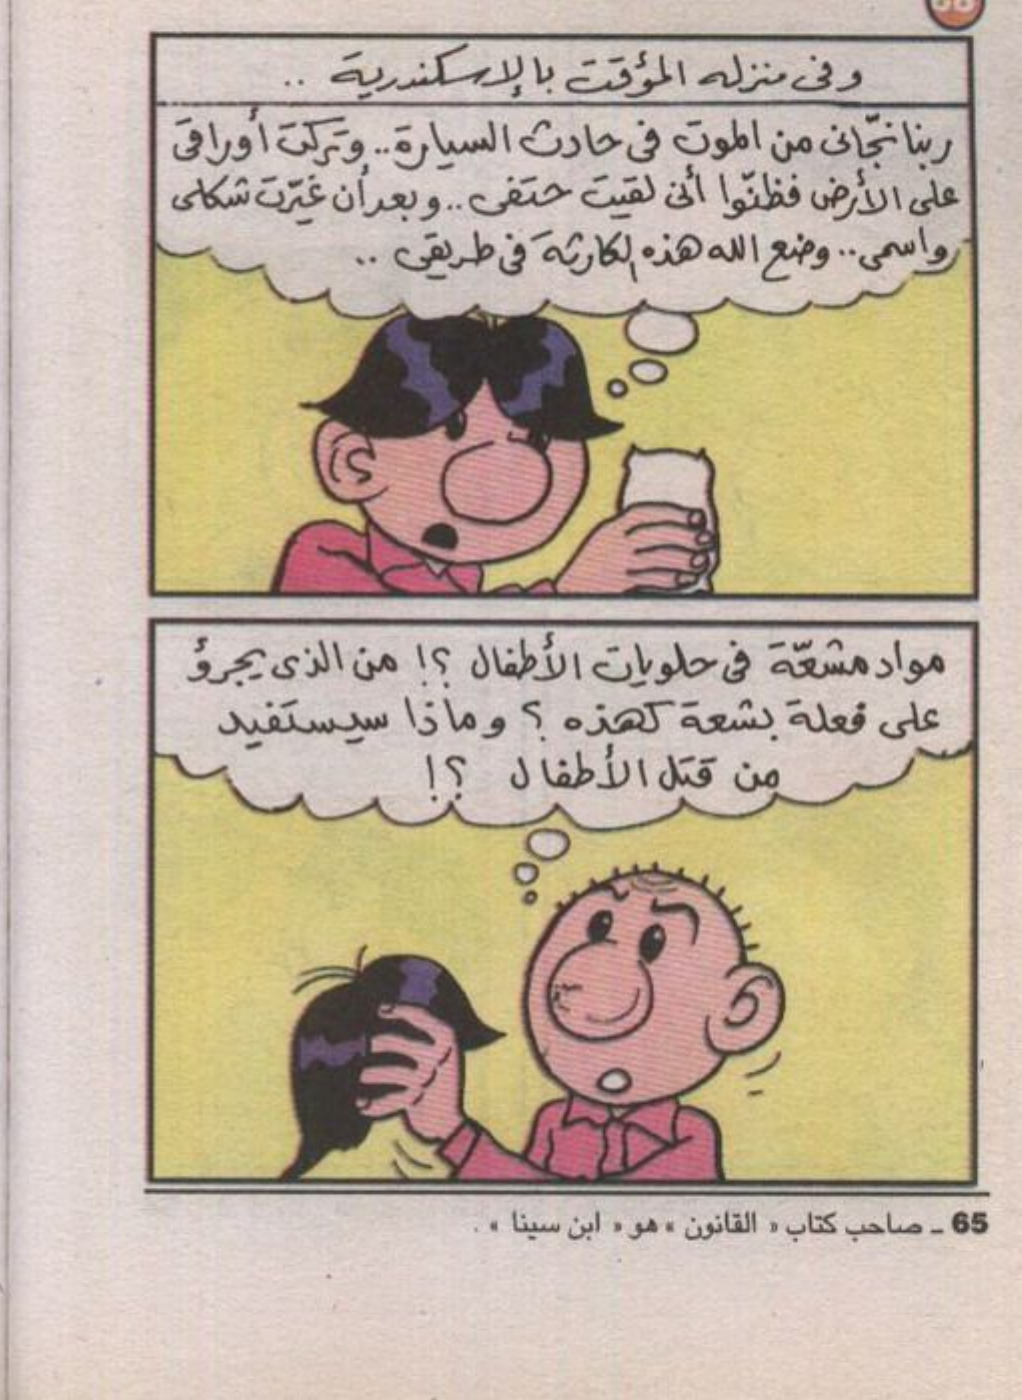 وفى منزله المؤقت بالإسكندرية ..
ربنا نجّانى من الموت فى حادث السيارة.. وتركت أوراقى
على الأرض فظنّوا أنى لقيت حتفى.. وبعد أن غيّرت شكلى
واسمى.. وضع الله هذه الكارثة فى طريقى ..
مواد مشعّة فى حلويات الأطفال ؟! من الذى يجرؤ
على فعلة بشعة كهذه ؟ وماذا سيستفيد
من قتل الأطفال ؟!
65 ـ صاحب كتاب « القانون » هو « ابن سينا » .